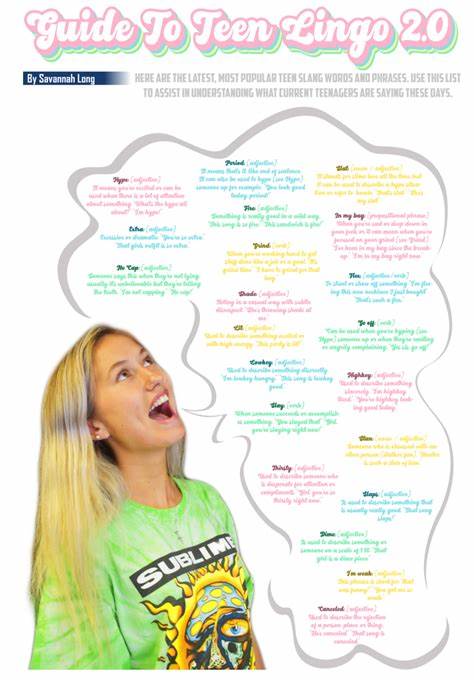 Guide To Teen Lingo 2.0
By Savannah Long
HERE ARE THE LATEST, MOST POPULAR TEEN SLANG WORDS AND PHRASES. USE THIS LIST
TO ASSIST IN UNDERSTANDING WHAT CURRENT TEENAGERS ARE SAYING THESE DAYS.
Hype: (adjective)
It means you're excited or can be
used when there is a lot of attention
about something. "What's the hype all
about?" "I'm hype!"
Extra: (adjective)
Excessive or dramatic. "You're so extra."
"That girl's outfit is so extra."
No Cap: (adjective)
Someone says this when they're not lying,
usually it's unbelievable but they're telling
the truth. "I'm not capping." "No cap!"
Period: (adjective)
It means that's it like end of sentence.
It can also be used to hype (see Hype)
someone up for example, "You look good
today, period!"
Fire: (adjective)
Something is really good in a wild way.
"This song is so fire." "This sandwich is fire!"
Grind: (verb)
When you're working hard to get
"I have to grind for that
Shade: (adjective)
Acting in a casual way with subtle
disrespect. "She's throwing shade at
me."
Lit: (adjective)
Used to describe something excited or
with high energy. "This party is lit!"
Lowkey: (adjective)
Used to describe something discreetly.
"I'm lowkey hungry." "This song is lowkey
good."
Slay: (verb)
When someone succeeds or accomplish
is something. "You slayed that." "Girl,
you're slaying right now!"
Thirsty: (adjective)
Used to describe someone who
is desperate for attention or
compliments. "Girl, you're so
thirsty right now."
In my bag: (prepositional phrase)
When you're
"I've been in my bag
"I'm in my bag right now."
Flex: (adjective/verb)
To stunt or show off something. "I'm flexing
this new necklace I just bought."
"That's such a flex."
Go off: (verb)
Can be used when you're hyping (see
Hype) someone up or when they're ranting
or angrily complaining. "Yes sis, go off!"
Highkey: (adjective)
Used to describe something
sincerely. "I'm highkey
"You're highkey look
ing good today."
Stan: (noun/verb)
Someone who is obsessed with an
other person
such a stan of him."
Slaps: (adjective)
Is used to describe something that
is usually really good. "That song
slaps!"
Dime: (adjective)
Is used to describe something or
someone on a scale of 1-10. "That
girl is a dime piece."
I'm weak: (adjective)
This phrase is
was funny". "You got me so
weak."
Canceled: (adjective)
Used to describe the rejection
of a person, place or thing.
"He's canceled." "That song is
canceled."
SUBLIME